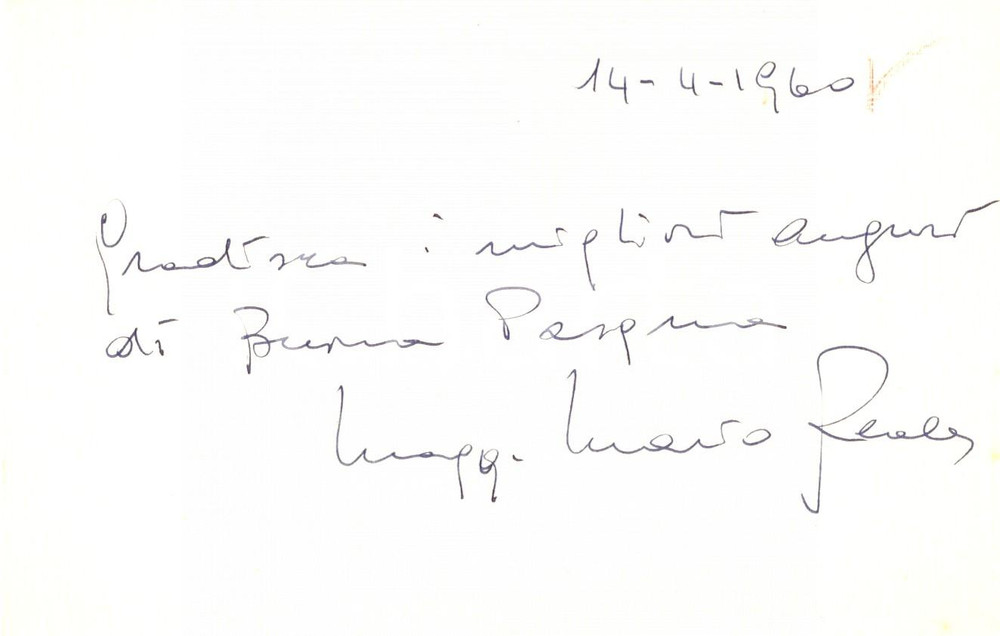 14-4-1960
Gradisca i migliori auguri
di Buona Pasqua
Magg. Mario